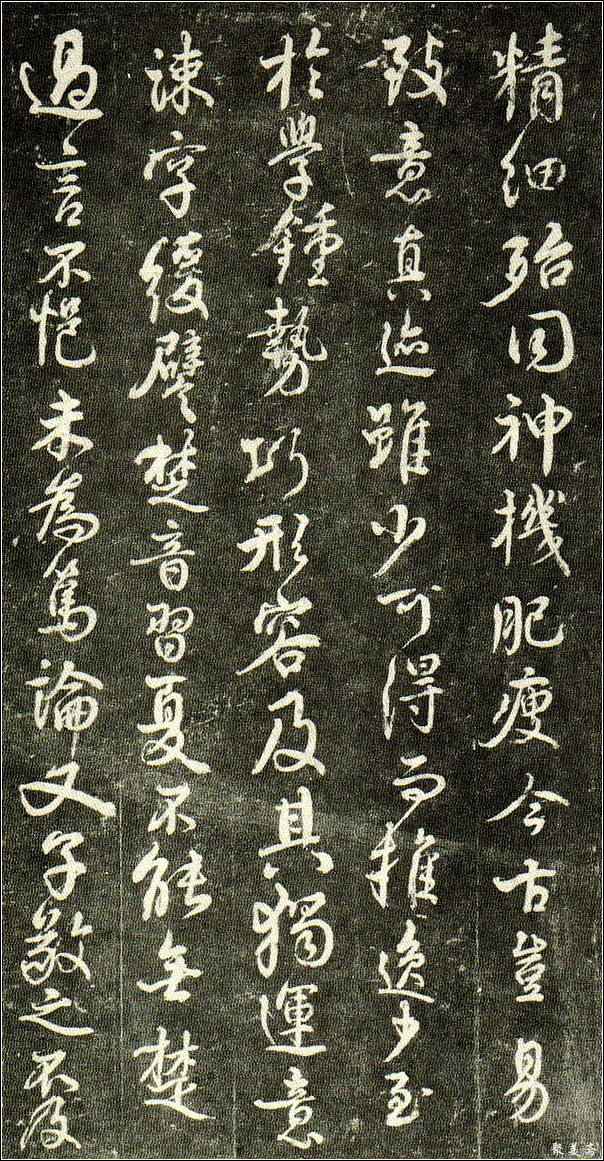 精細殆同神機肥瘦今古豈易
致意真迹雖少可得而推逸少至
於學鍾勢巧形容及其獨運意
疎字緩譬楚音習夏不能無楚
過言不悒未為篤論又子敬之不及
聚美斋